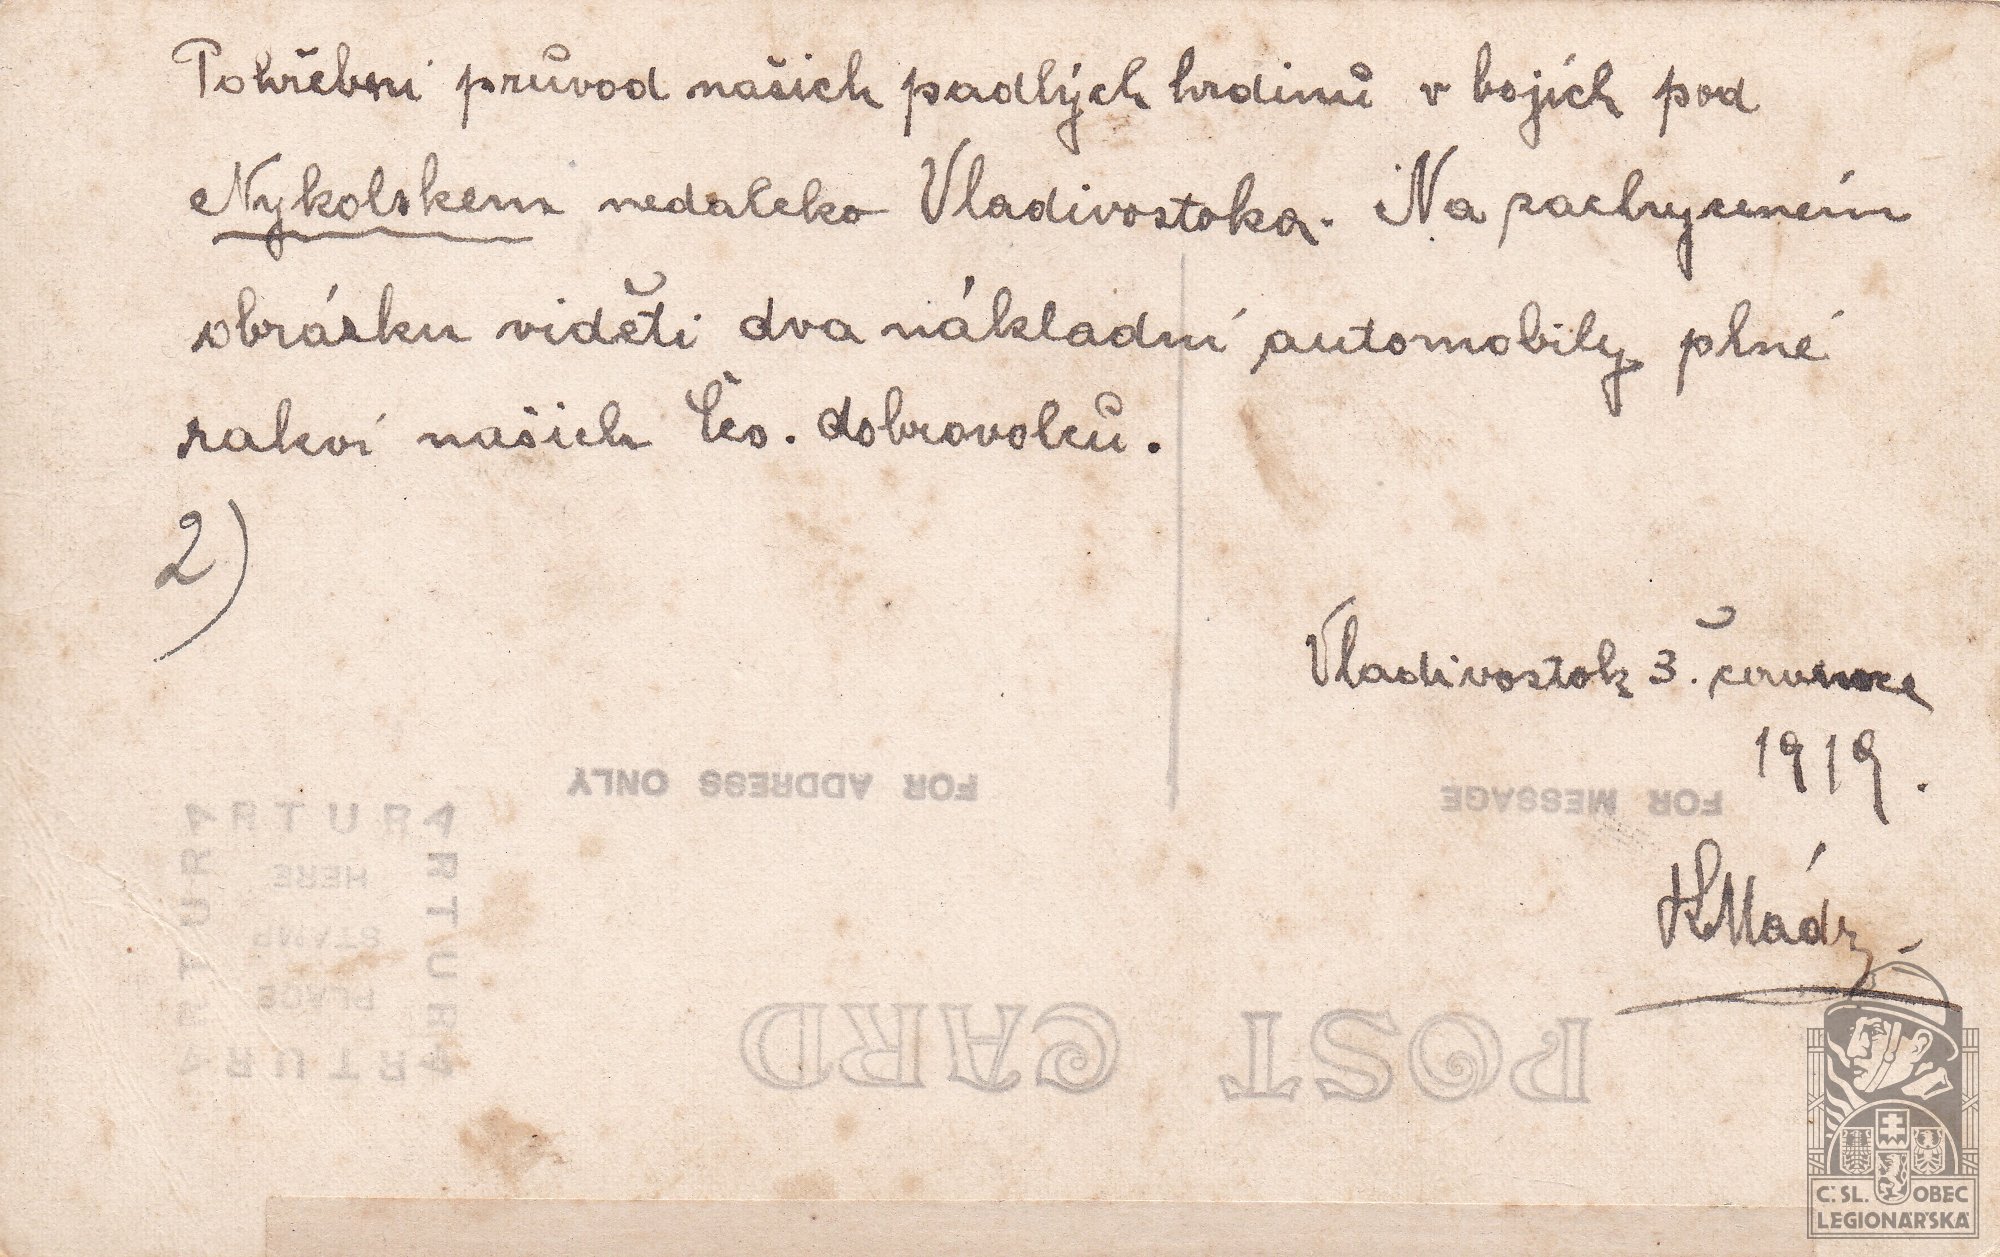 Pohřební průvod našich padlých hrdinů v bojích pod
Nykolskem nedaleko Vladivostoka. Na zachyceném
obrásku viděti dva nákladní automobily plné
rakví našich Čes. dobrovolců.
2)
Vladivostok 3. července
1919.
KMádr
FOR ADDRESS ONLY
FOR MESSAGE
ARTURA
ARTURA
ARTURA
ARTURA
PLACE
STAMP
HERE
POST CARD
Č. SL. OBEC
LEGIONÁŘSKÁ